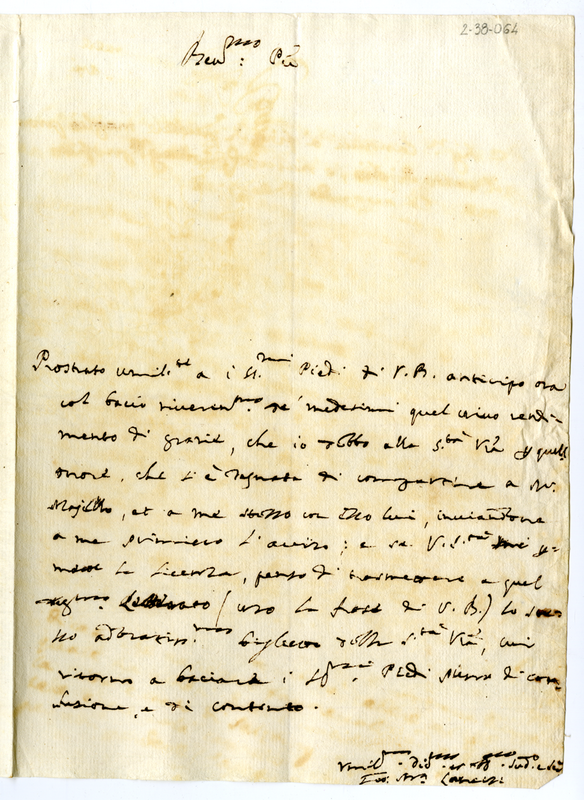 2-38-064
Rev.mo: P.re
Prostrato umil.te a i SS.mi Piedi di V. B. anticipo ora
col bacio riveren.mo de' medesimi quel vivo rendi-
mento di grazie, che io debbo alla S.tà V.ra p quell'
onore, che s'è degnata di compartire a M.
Majello, et a me stesso con esso lui, inviandone
a me l'avviso; e se V. S.tà mi p-
mette la licenza, penso di trasmettere a quel
Letterato (uso la frase di V. B.) lo stes-
so adoratiss.mo biglietto della S.tà V.ra, cui
ritorno a baciare i SS.mi Piedi pieno di con-
fusione, e di contento.
Umil.mo Div.mo et Obb.mo Sud.o e
Gio: M.a Lancisi